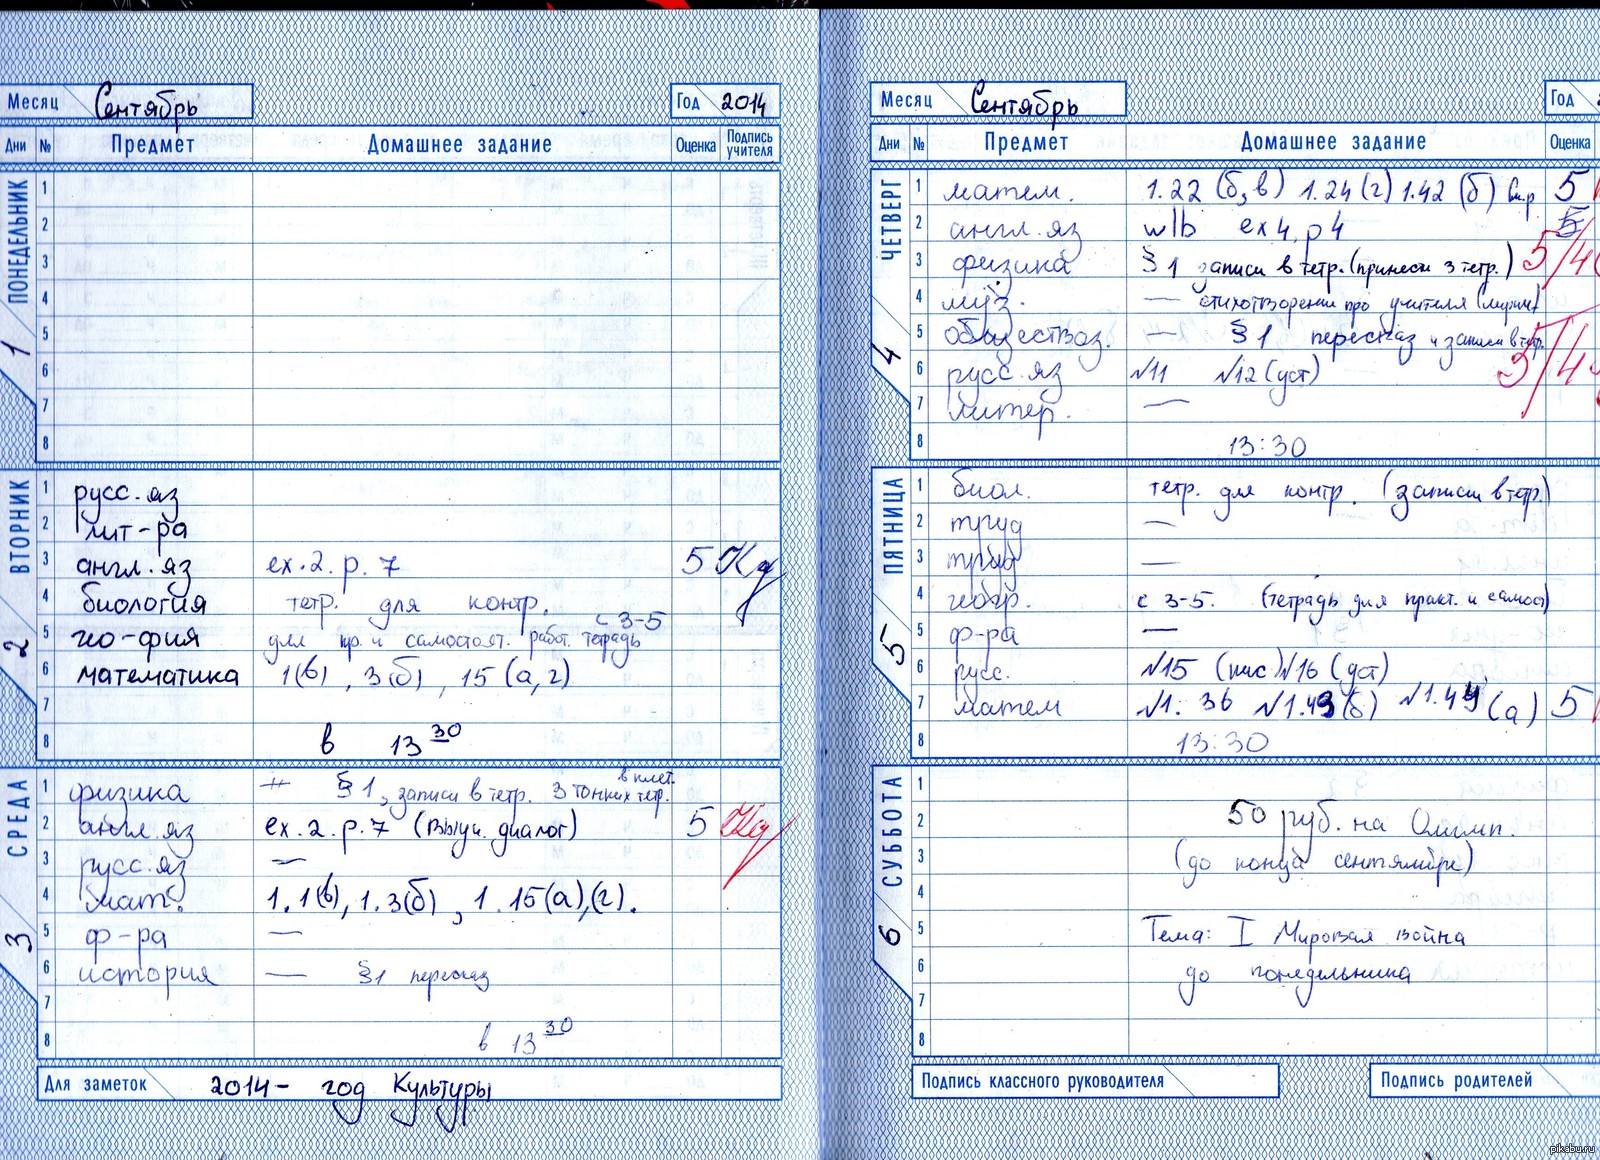 Месяц Сентябрь Год 2014
Дни № Предмет Домашнее задание Оценка Подпись учителя
ПОНЕДЕЛЬНИК 1
1
2
3
4
5
6
7
8
ВТОРНИК 2
1 русс. яз
2 лит-ра
3 англ. яз ex. 2. p. 7 5
4 биология тетр. для контр.
5 гео-фия для пр. и самостоят. работ. тетрадь с 3-5
6 математика 1(в), 3(б), 15 (а, г)
7
8 в 13 30
СРЕДА 3
1 физика § 1, записи в тетр. 3 тонких тетр. в клет.
2 англ. яз ex. 2. p. 7 (выуч. диалог) 5
3 русс. яз —
4 мат. 1.1(в), 1.3(б), 1.15(а),(г).
5 ф-ра —
6 история — §1 пересказ
7
8 в 13 30
Для заметок 2014 - год Культуры
Месяц Сентябрь Год
Дни № Предмет Домашнее задание Оценка
ЧЕТВЕРГ 4
1 матем. 1.22 (б, в) 1.24 (г) 1.42 (б) 5
2 англ. яз w/b ex 4, p 4 5
3 физика § 1 записи в тетр. (принести 3 тетр.) 5/4
4 муз. — стихотворении про учителя
5 обществоз. — § 1 пересказ и записи в тетр.
6 русс. яз №11 №12 (уст) 3/4
7 литер. —
8 13:30
ПЯТНИЦА 5
1 биол. тетр. для контр. (записи в тетр.)
2 труд —
3 труд —
4 геогр. с 3-5. (тетрадь для практ. и самост)
5 ф-ра —
6 русс. №15 (пис) №16 (уст)
7 матем №1.36 №1.43 (б) №1.44 (а) 5
8 13:30
СУББОТА 6
1
2 50 руб. на Олимп.
3 (до конца сентября)
4
5 Тема: I Мировая война
6 до понедельника
7
8
Подпись классного руководителя Подпись родителей
pikabu.ru